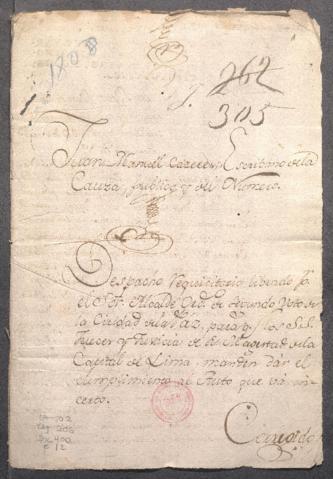 1808
262
305
Juan Manuel Caceres, Escribano de la
Cauza, publico, y del Numero.
Despacho Requicitorio librado pr.
el Sor. Alcalde Ordo. de segundo Voto de
la Ciudad de la Paz, para q. los S.S.
Jueces y Justicias de S. Magestad de la
Capital de Lima, manden dár el
cumplimiento al Auto que vá in-
certo.
12